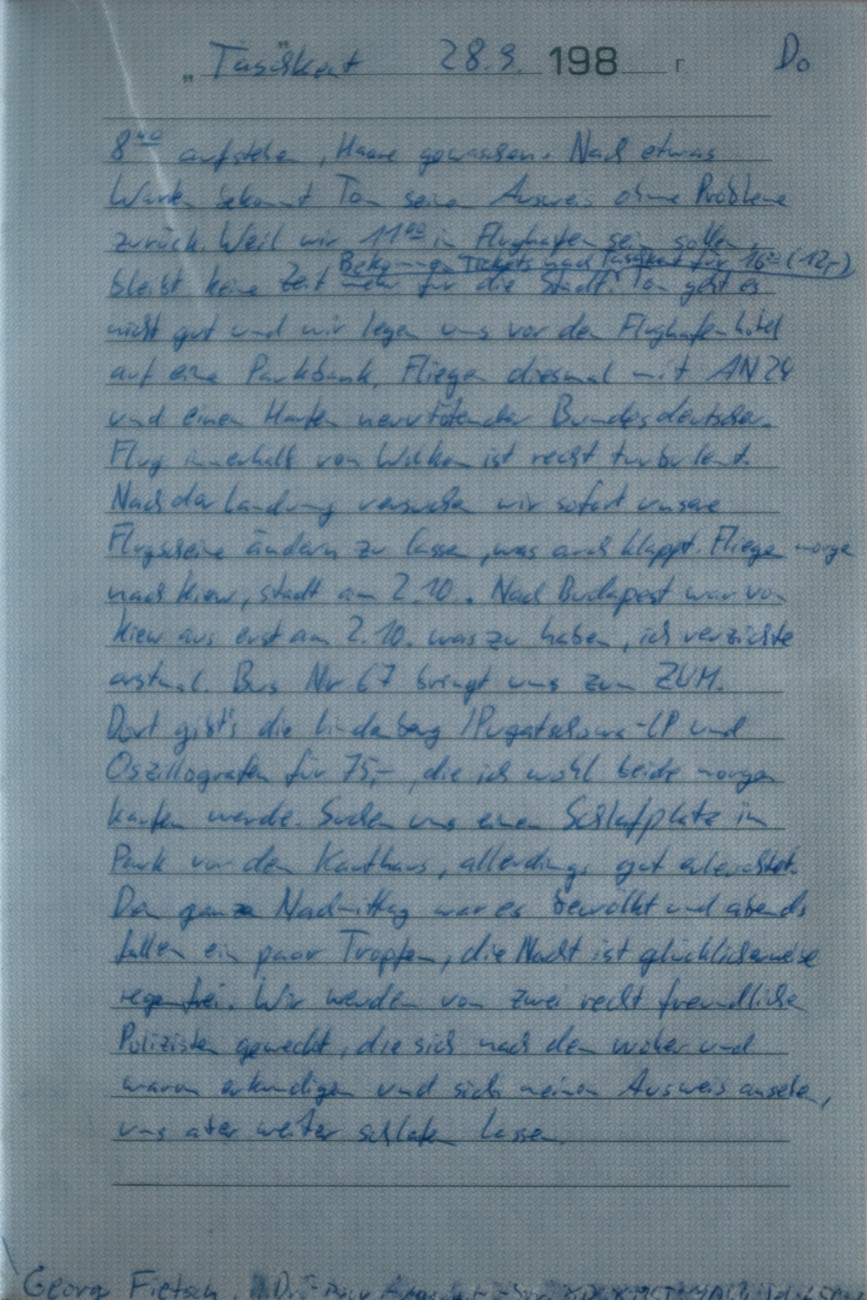 „Taschkent" 28.9. 198 г. Do
8⁴⁰ aufstehen, Haare gewaschen. Nach etwas
Warten bekommt Tom seinen Ausweis ohne Probleme
zurück. Weil wir 11⁰⁰ in Flughafen sein sollen,
Bekommen Tickets nach Taschkent für 16⁰⁰ (12,-)
bleibt keine Zeit mehr für die Stadt. Tom geht es
nicht gut und wir legen uns vor den Flughafenhotel
auf eine Parkbank. Fliegen diesmal mit AN 24
und einen Haufen nervtötender Bundesdeutscher.
Flug innerhalb von Wolken ist recht turbulent.
Nach der Landung versuchen wir sofort unsere
Flugscheine ändern zu lassen, was auch klappt. Fliegen morgen
nach Kiew, statt am 2.10.. Nach Budapest war von
Kiew aus erst am 2.10. was zu haben, ich verzichte
erstmal. Bus Nr 67 bringt uns zum ZUM.
Dort gibt's die Lindenberg/Pugatschowa-LP und
Oszillografen für 75,-, die ich wohl beide morgen
kaufen werde. Suchen uns einen Schlafplatz im
Park vor dem Kaufhaus, allerdings gut erleuchtet.
Den ganzen Nachmittag war es bewölkt und abends
fallen ein paar Tropfen, die Nacht ist glücklicherweise
regenfrei. Wir werden von zwei recht freundlichen
Polizisten geweckt, die sich nach dem woher und
warum erkundigen und sich meinen Ausweis ansehen,
uns aber weiter schlafen lassen.
Georg Fietsch